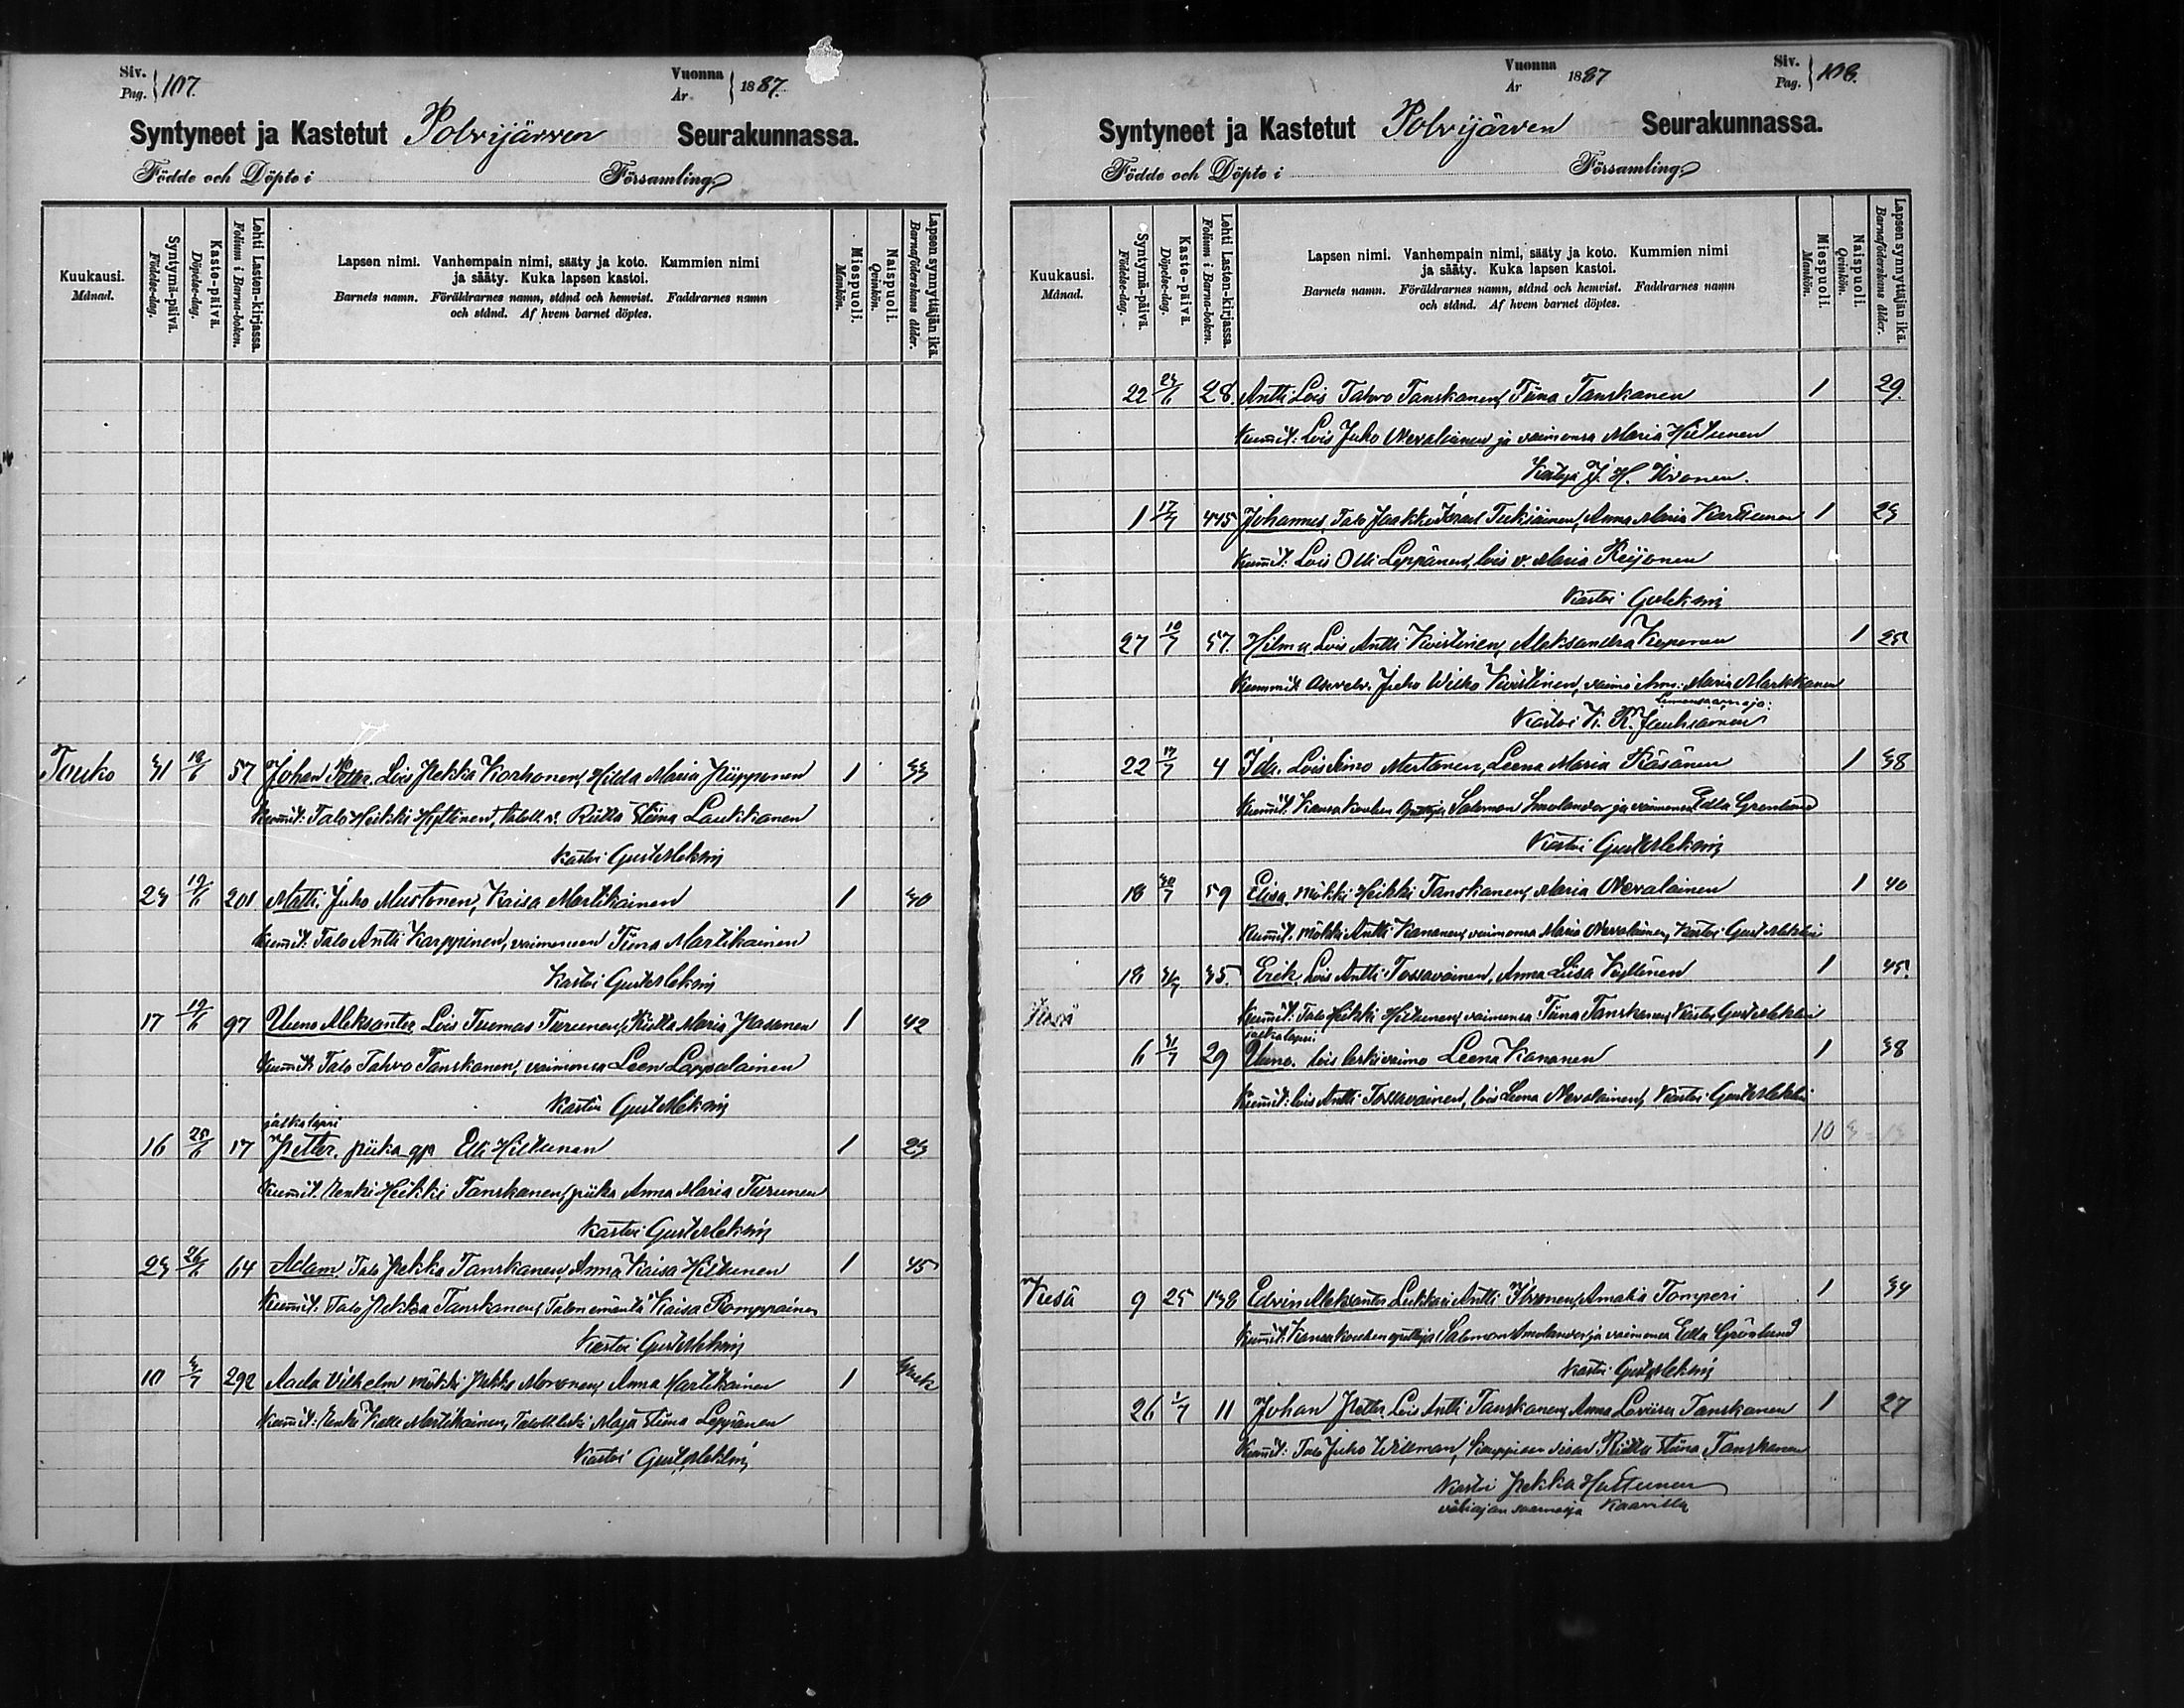 Siv. Pag. 107.
Vuonna År 1887.
Syntyneet ja Kastetut Polvijärven Seurakunnassa.
Födde och Döpte i Församling
Kuukausi. Månad.
Syntymä-päivä. Födelse-dag.
Kaste-päivä. Döpelse-dag.
Lehti Lasten-kirjassa. Folium i Barna-boken.
Lapsen nimi. Vanhempain nimi, sääty ja koto. Kummien nimi
ja sääty. Kuka lapsen kastoi.
Barnets namn. Föräldrarnes namn, stånd och hemvist. Faddrarnes namn
och stånd. Af hvem barnet döptes.
Miespuoli. Mankön.
Naispuoli. Qvinkön.
Lapsen synnyttäjän ikä. Barnaföderskans ålder.
Touko 31 57 Johan Petter. Lois Pekka Korhonen, Hilda Maria Piipponen 1 33
Kummit: Talo Heikki Hyttinen, Riitta Stiina Laukkanen
Kastoi Gust Meklin
23 19/6 201 Matti. Juho Mustonen, Kaisa Martikainen 1 30
Kummit: Talo Antti Karppinen, vaimonsa Tiina Martikainen
Kastoi Gust Meklin
17 19/6 97 Uuno Aleksanter Lois Tuomas Turunen, Riitta Maria Pasanen 1 42
Kummit: Talo Tahvo Tanskanen, vaimonsa Leena Lappalainen
Kastoi Gust Meklin
jalkalapsi
16 25/6 17 Petter. piika Elli Hiltunen 1 23
Kummit. Renki Heikki Tanskanen, piika Anna Maria Turunen
Kastoi Gust Meklin
23 26/6 64 Adam. Talo Pekka Tanskanen, Anna Kaisa Hiltunen 1 45
Kummit. Talo Pekka Tanskanen, Talon emäntä Kaisa Romppainen
Kastoi Gust Meklin
10 3/7 292 Aada Vilhelm mökki Pekka Moronen, Anna Martikainen 1
Kummit: Renki Kalle Martikainen, Maja Stiina Leppänen
Kastoi Gust Meklin
Vuonna År 1887
Siv. Pag. 108.
Syntyneet ja Kastetut Polvijärven Seurakunnassa.
Födde och Döpte i Församling
Kuukausi. Månad.
Syntymä-päivä. Födelse-dag.
Kaste-päivä. Döpelse-dag.
Lehti Lasten-kirjassa. Folium i Barna-boken.
Lapsen nimi. Vanhempain nimi, sääty ja koto. Kummien nimi
ja sääty. Kuka lapsen kastoi.
Barnets namn. Föräldrarnes namn, stånd och hemvist. Faddrarnes namn
och stånd. Af hvem barnet döptes.
Miespuoli. Mankön.
Naispuoli. Qvinkön.
Lapsen synnyttäjän ikä. Barnaföderskans ålder.
22 28. Antti. Lois Tahvo Tanskanen, Tiina Tanskanen 1 29.
Kummit: Lois Juho Nevalainen ja vaimonsa Maria Hiltunen
J. H.
1 17/7 445 Johannes, Talo Jaakko Israel Tukiainen, Anna Maria Karttunen 1 23
Kummit: Lois Olli Leppänen, lois v. Maria Reijonen
Kastoi G Meklin
27 10/7 57. Hilma. Lois Antti Kvistinen, Aleksandra Kuponen 1 25
Kummit Juho Wilho Kvistinen, vaimo Anna Maria Markkanen
Kastoi K. R. Jauhiainen
22 17/7 4 Ida. Lois Simo Mertanen, Leena Maria Räsänen 1 38
Kummit: Kansa Koulun Opettaja Salomon Smolander ja vaimonsa Edla Grönlund
Kastoi Gust Meklin
18 30/7 59 Elisa, Mökki Heikki Tanskanen, Maria Nevalainen 1 40
Kummit. Mökki Antti Kananen, vaimonsa Maria Nevalainen, Kastoi Gust Meklin
18 31/7 35. Erik. Lois Antti Tossavainen, Anna Liisa Kyllönen 1 45
Kesä Kummit: Talo Heikki Hiltunen, vaimonsa Tiina Tanskanen, Kastoi Gust Meklin
jalkalapsi
6 31/7 29 Uuno. lois leskivaimo Leena Kananen 1 38
Kummit: lois Antti Tossavainen, lois Leena Nevalainen, Kastoi Gust Meklin
10 3 = 13
Kesä 9 25 138 Edvin Aleksanter Lukkari Antti Ikonen, Amalia Tomperi 1 34
Kummit: Kansa Koulun opettaja Salomon Smolander ja vaimonsa Edla Grönlund
Kastoi Gust Meklin
26 1/7 11 Johan Petter. Lois Antti Tanskanen, Anna Loviisa Tanskanen 1 27
Kummit: Talo Juho Willman, Riitta Stiina Tanskanen
Kastoi Pekka Huttunen
väliajan saarnaaja Kaavilla